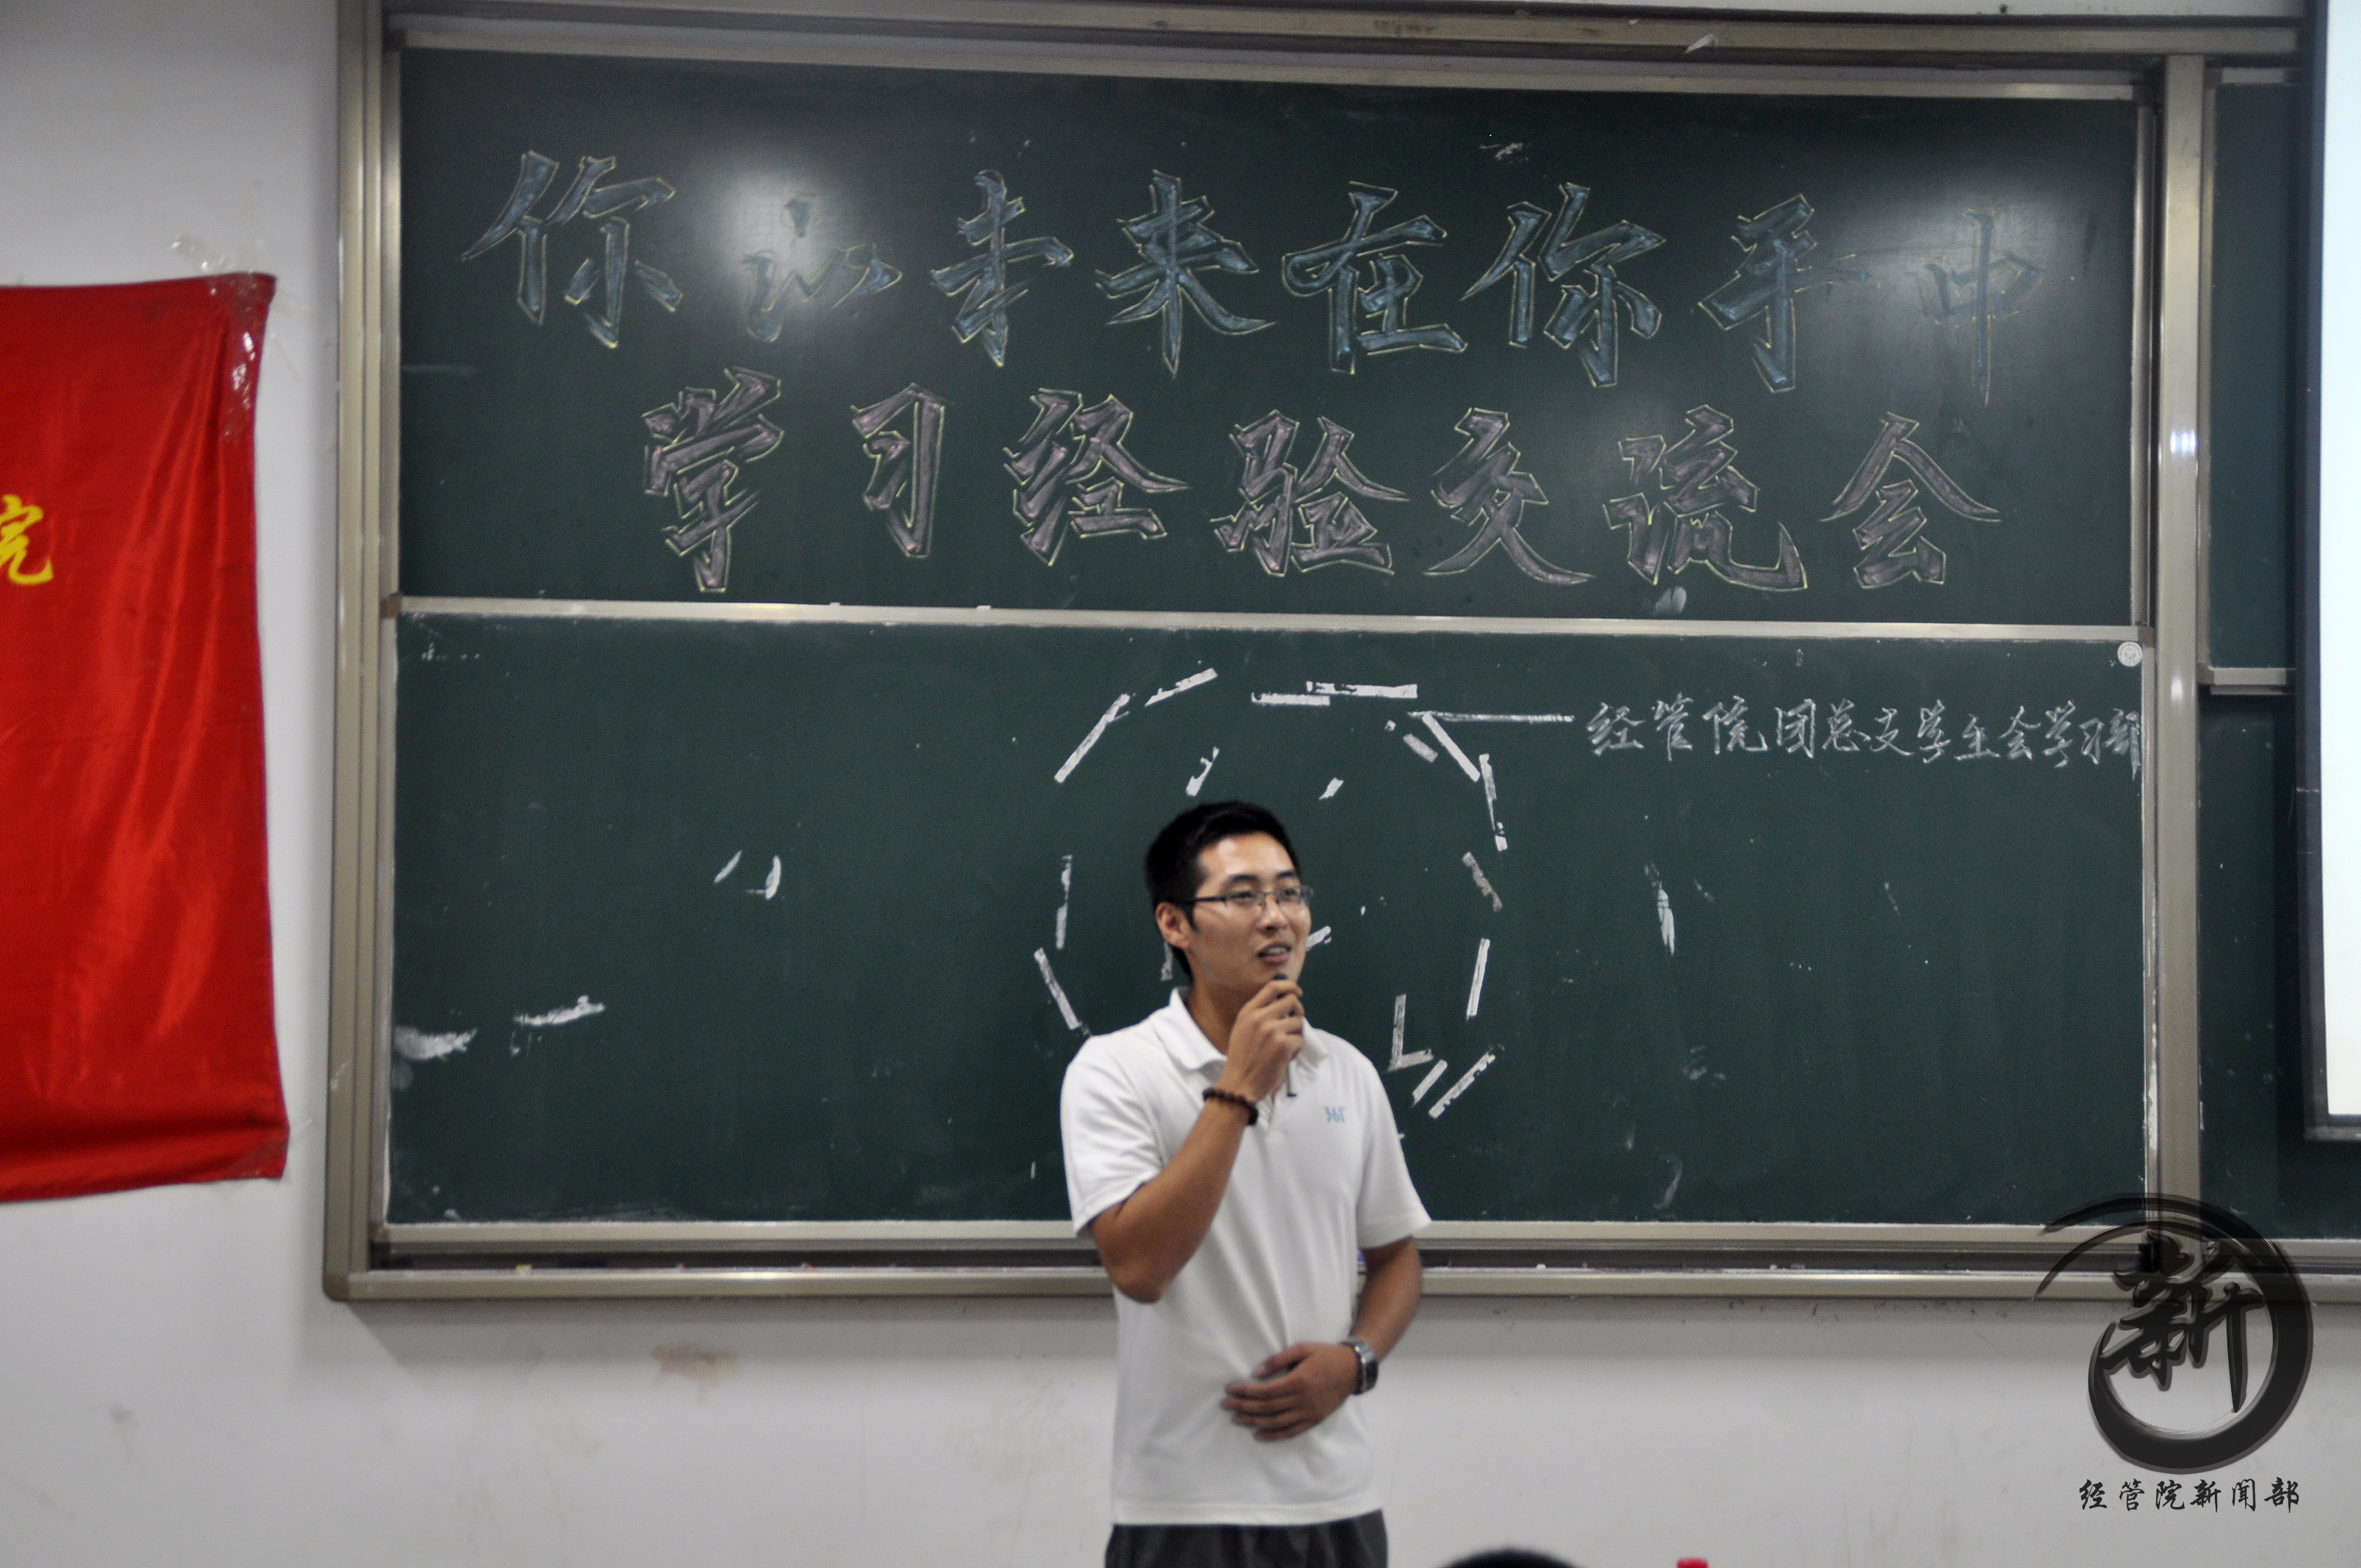 你的未来在你手中
学习经验交流会
经管院团总支学生会学习部
院
新
经管院新闻部